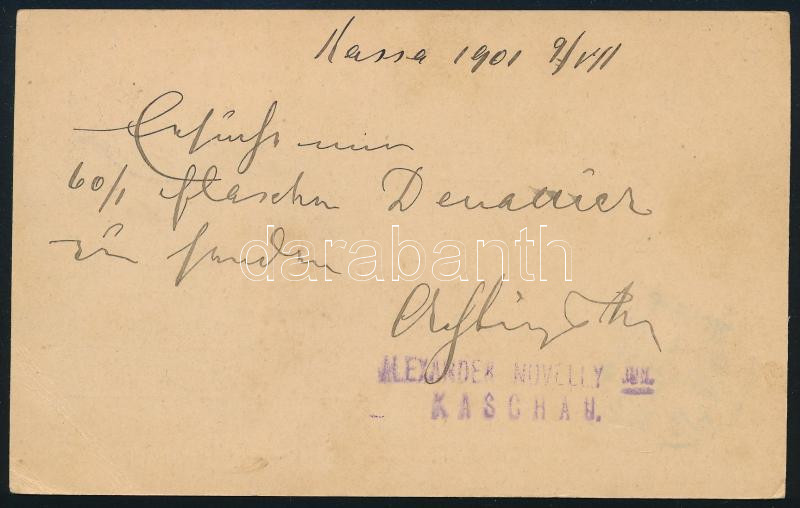 Kassa 1901 9/VII
Ersuche mir
60/1 flaschen
zu senden
darabanth
ALEXANDER NOVELLY JUN.
KASCHAU.